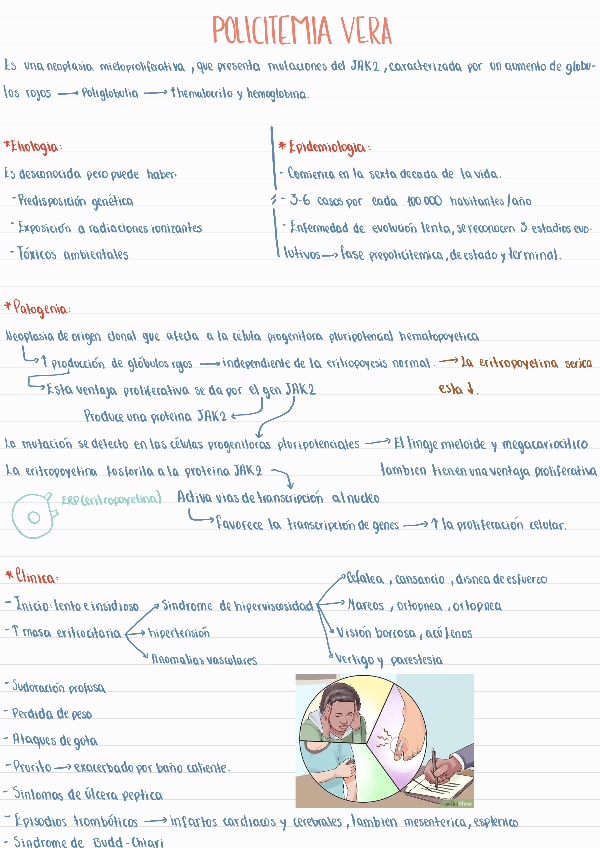 POLICITEMIA VERA
Es una neoplasia mieloproliferativa, que presenta mutaciones del JAK2, caracterizada por un aumento de glóbu-
los rojos → Poliglobulia → ↑ hematocrito y hemoglobina.
*Etiologia:
Es desconocida pero puede haber:
- Predisposición genética
- Exposición a radiaciones ionizantes
- Tóxicos ambientales
* Epidemiologia:
- Comienza en la sexta decada de la vida.
- 3-6 casos por cada 100 000 habitantes/año
- Enfermedad de evolución lenta, se reconocen 3 estadios evo-
lutivos → fase prepolicitemica, de estado y terminal.
*Patogenia:
Neoplasia de origen clonal que afecta a la célula progenitora pluripotencial hematopoyetica
↑ producción de glóbulos rojos → independiente de la eritropoyesis normal. → La eritropoyetina serica
esta ↓.
Esta ventaja proliferativa se da por el gen JAK2
Produce una proteina JAK2
La mutación se detecto en las células progenitoras pluripotenciales → El linaje mieloide y megacariocitico
tambien tienen una ventaja proliferativa
La eritropoyetina fosforila a la proteina JAK2
ERP (eritropoyetina)
Activa vias de transcripción al nucleo
Favorece la transcripción de genes → ↑ la proliferación celular.
*Clinica:
- Inicio: lento e insidioso
- ↑ masa eritrocitaria
Sindrome de hiperviscosidad
hipertensión
Anomalias vasculares
Cefalea, cansancio, disnea de esfuerzo
Mareos, ortopnea, ortopnea
Visión borrosa, acúfenos
Vertigo y parestesia
- Sudoración profusa
- Perdida de peso
- Ataques de gota
- Prurito → exacerbado por baño caliente.
- Sintomas de úlcera peptica
- Episodios trombóticos → infartos cardiacos y cerebrales, tambien mesenterica, esplenico
- Sindrome de Budd-Chiari
wikiHow